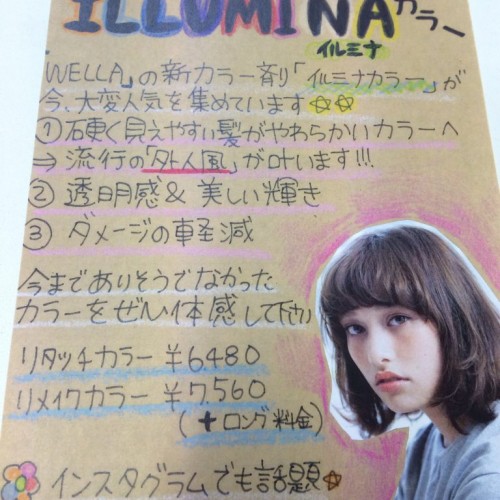 ILLUMINAカラー
イルミナ
「WELLA」の新カラー剤「イルミナカラー」が
今、大変人気を集めています☆☆
① 硬く見えやすい髪がやわらかいカラーへ
⇒ 流行の「外人風」が叶います!!!
② 透明感 & 美しい輝き
③ ダメージの軽減
今までありそうでなかった
カラーをぜひ体感して下さい
リタッチカラー ¥6.480
リメイクカラー ¥7.560
(+ロング料金)
インスタグラムでも話題☆